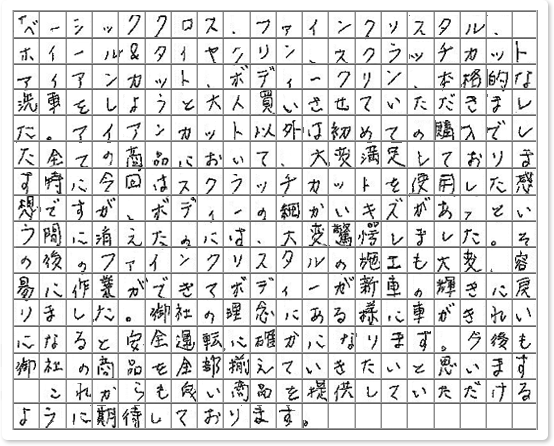 ベーシッククロス、ファインクリスタル、
ホイール&タイヤクリン、スクラッチカット
アイアンカット、ボディークリン、本格的な
洗車をしようと大人買いさせていただきまし
た。アイアンカット以外は初めての購入でし
た全ての商品において、大変満足しておりま
す時に今回はスクラッチカットを使用した感
想ですが、ボディーの細かいキズがあっとい
う間に消えたのには、大変驚愕しました。そ
の後のファインクリスタルの施工も大変、容
易に作業ができてボディーが新車の輝きに戻
りました。御社の理念にある様に車がきれい
になると安全運転に確かになります。今後も
御社の商品を全部揃えていきたいと思います
これからも良い商品を提供していただける
ように期待しております。